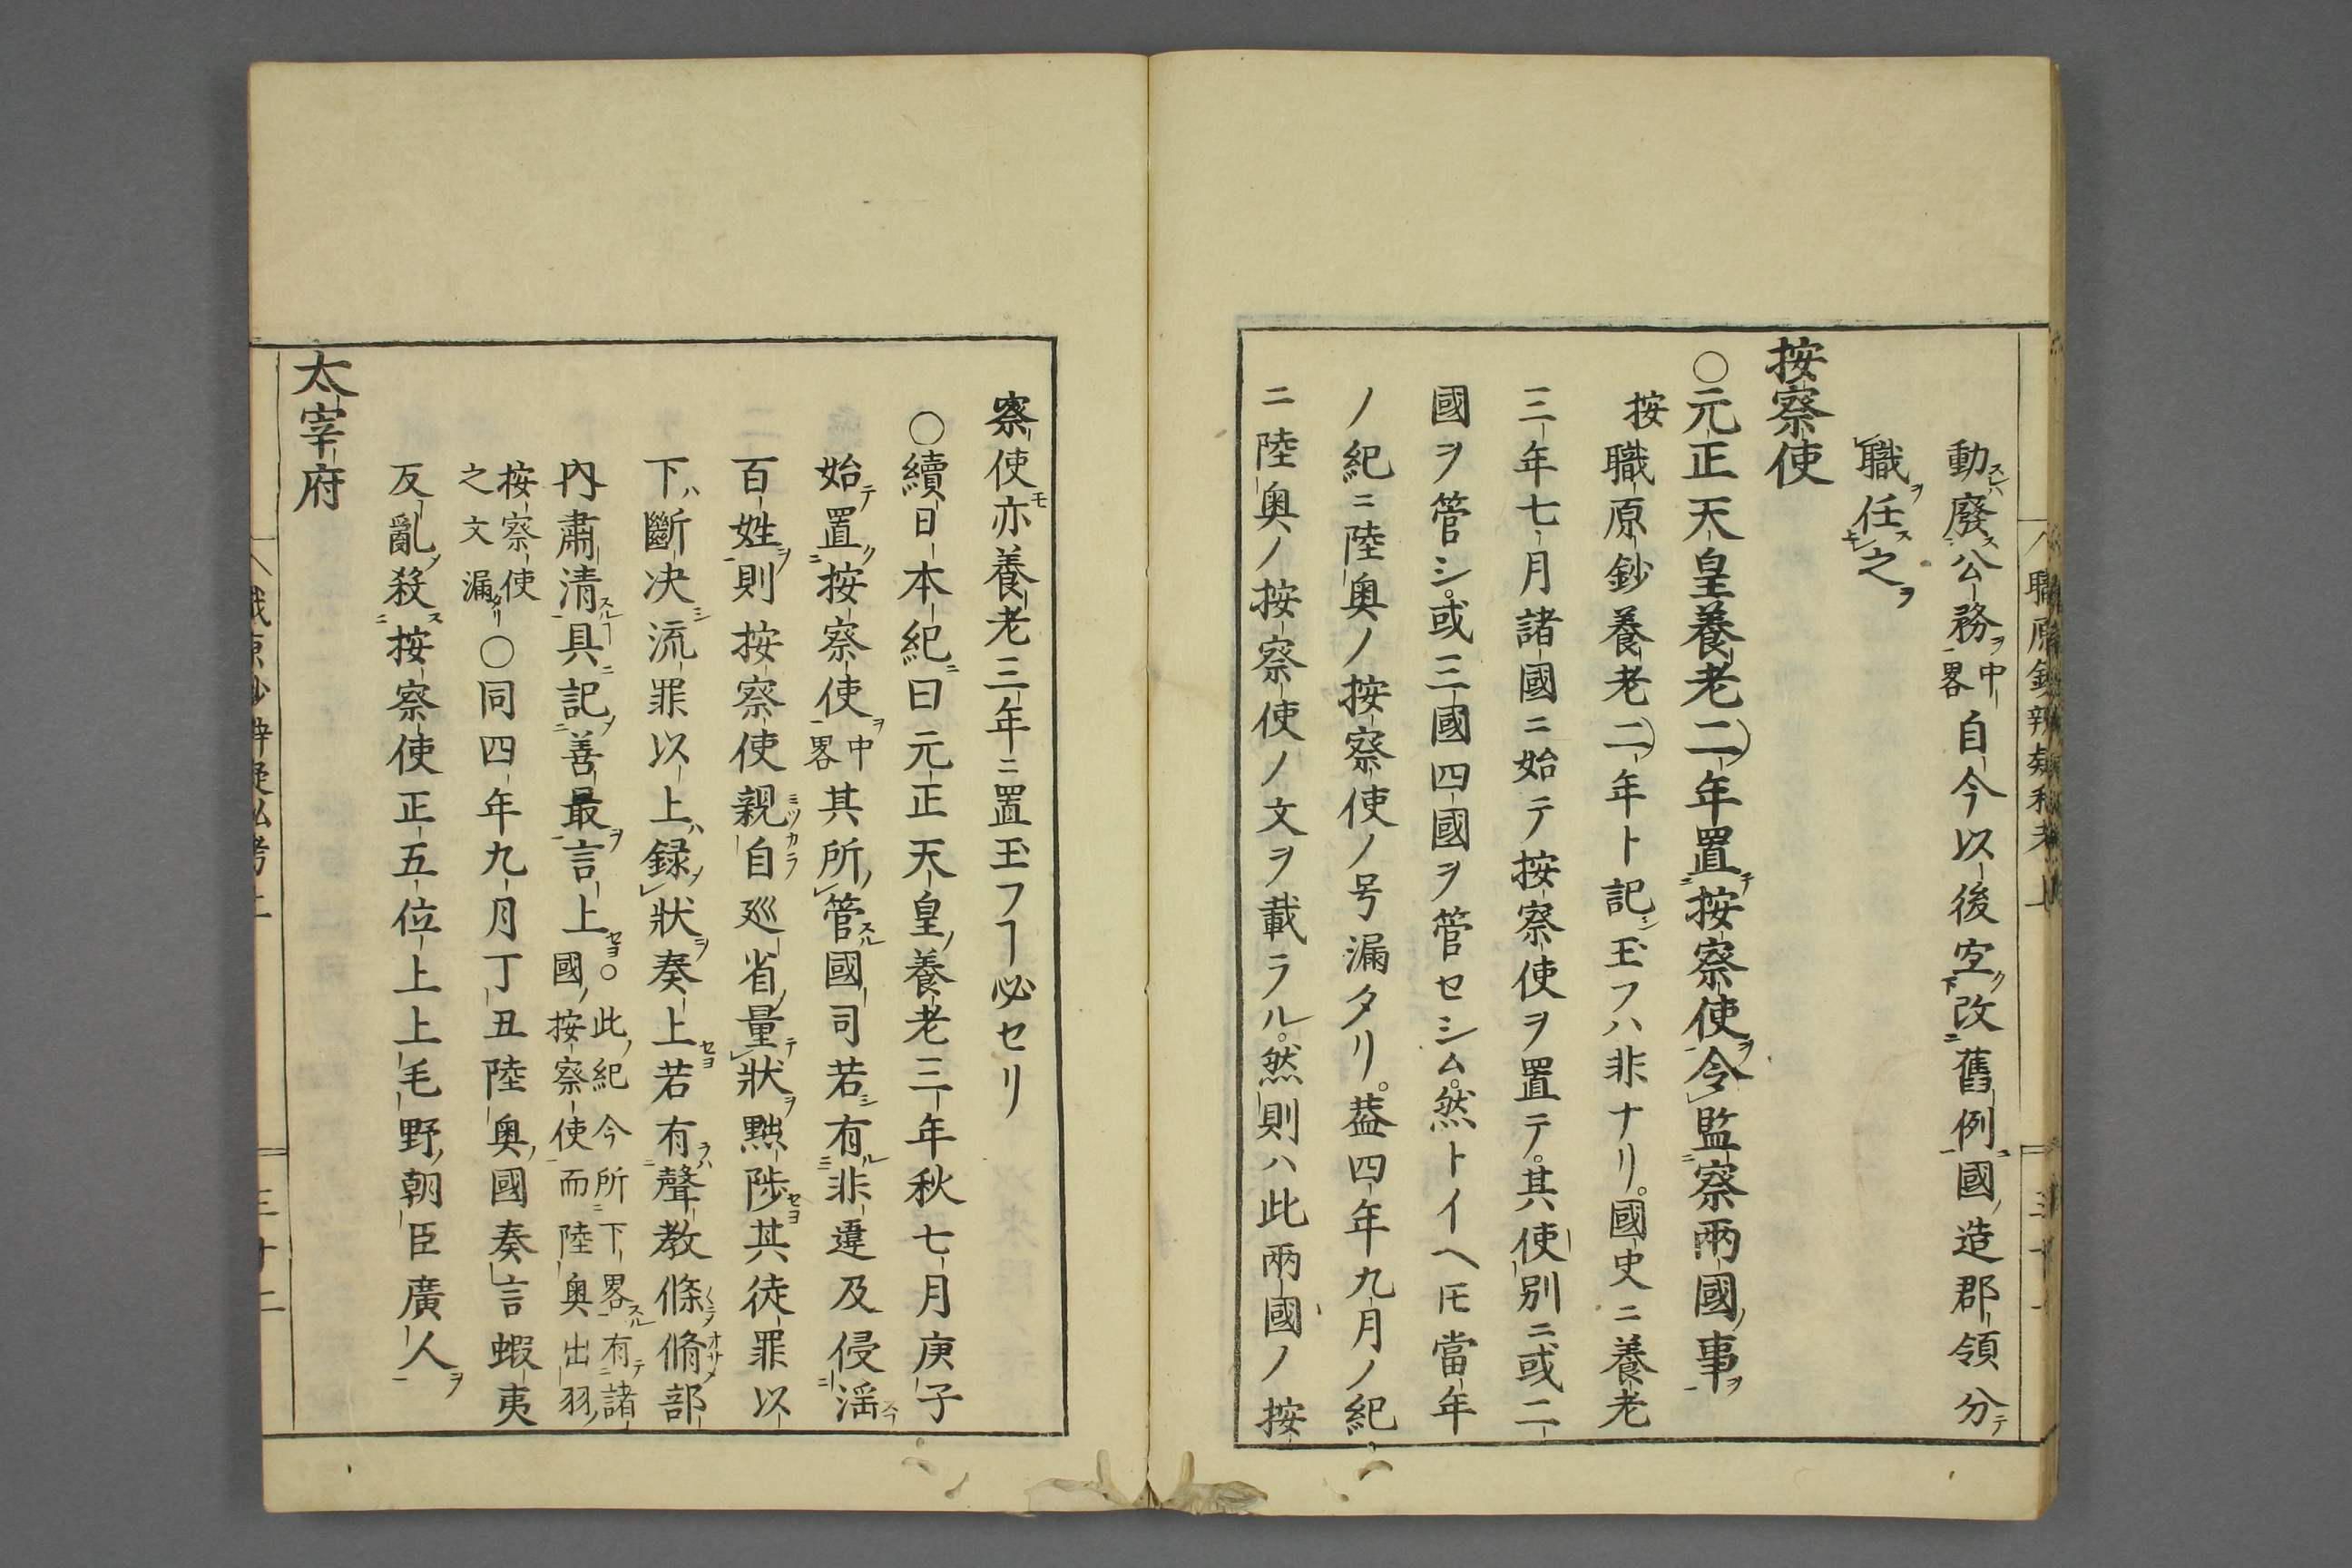 動廢公務中畧自今以後空改舊例國造郡領分
職任之
按察使
○元正天皇養老二年置按察使令監察兩國事
按職原鈔養老二年ト記シ玉フハ非ナリ。國史ニ養老
三年七月諸國ニ始テ按察使ヲ置テ。其使別ニ或二
國ヲ管シ。或三國四國ヲ管セシム。然トイヘ𪜈當年
ノ紀ニ陸奥ノ按察使ノ号漏タリ。葢四年九月ノ紀
ニ陸奥ノ按察使ノ文ヲ載ラル。然則ハ此兩國ノ按
察使亦養老三年ニ置玉フヿ必セリ
○續日本紀曰元正天皇養老三年秋七月庚子
始置按察使中畧其所管國司若有非違及侵淫
百姓則按察使親自巡省量狀黜陟其徒罪以
下斷决流罪以上録狀奏上若有聲教條脩部
內肅清具記善最言上○此紀今所下畧有諸國按察使而陸奥出羽
按察使之文漏○同四年九月丁丑陸奥國奏言蝦夷
反亂殺按察使正五位上上毛野朝臣廣人
太宰府